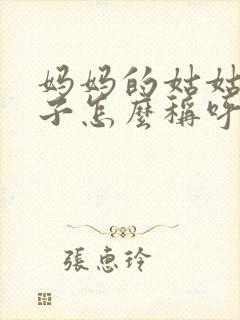 妈妈的姑姑
子怎麼稱呼
張恵玲